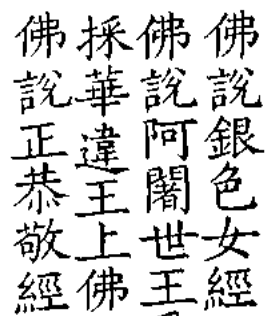 佛說銀色女經
佛說阿闍世王
採華違王上佛
佛說正恭敬經